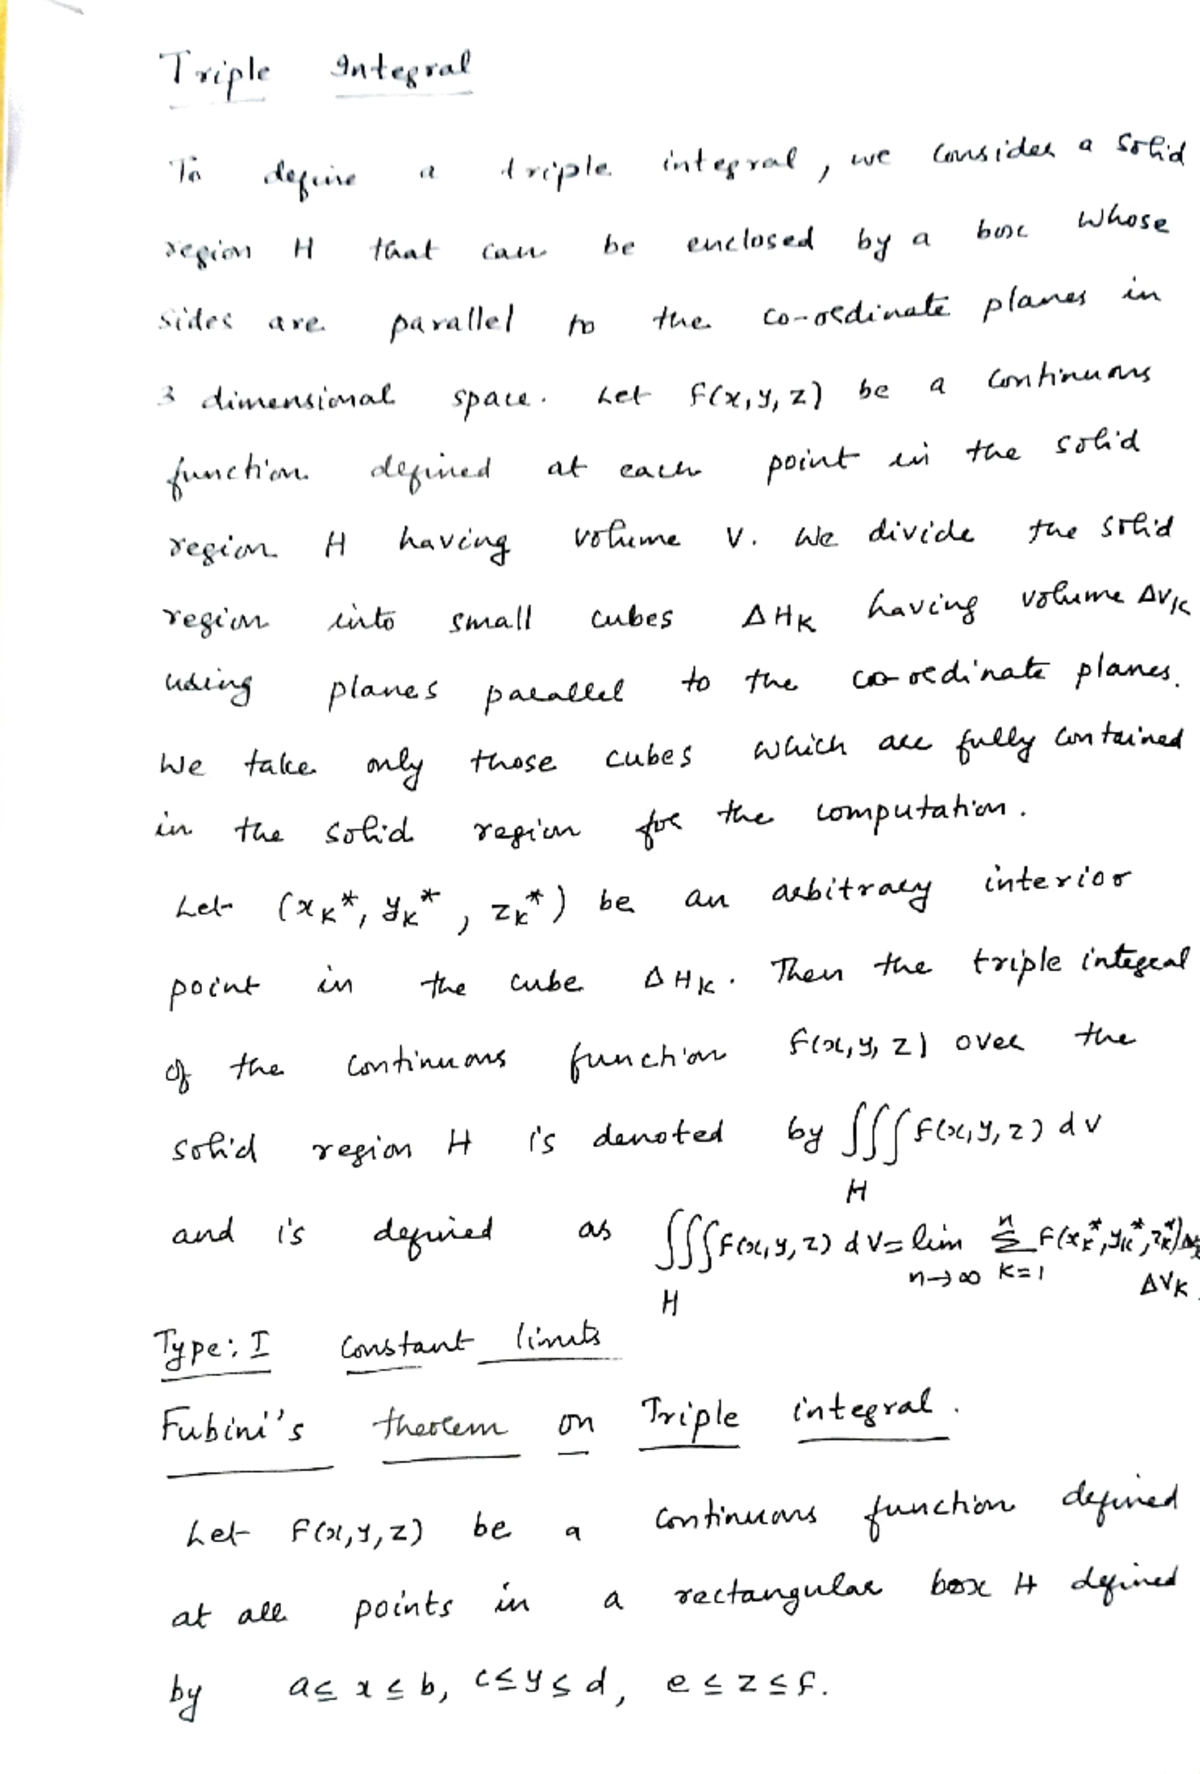 Triple Integral
To define a triple integral, we consider a solid
region H that can be enclosed by a box whose
sides are parallel to the co-ordinate planes in
3 dimensional space. Let f(x,y,z) be a continuous
function defined at each point in the solid
region H having volume V. We divide the solid
region into small cubes ΔHK having volume ΔVK
using planes parallel to the co-ordinate planes.
We take only those cubes which are fully contained
in the solid region for the computation.
Let (xK*, yK*, zK*) be an arbitrary interior
point in the cube ΔHK. Then the triple integral
of the continuous function f(x,y,z) over the
solid region H is denoted by ∭ f(x,y,z) dv
H
and is defined as ∭ f(x,y,z) dV = lim n→∞ Σ k=1 n f(xK*, yK*, zK*)
H ΔVK.
Type: I Constant limits
Fubini's theorem on Triple integral.
Let f(x,y,z) be a continuous function defined
at all points in a rectangular box H defined
by a≤x≤b, c≤y≤d, e≤z≤f.